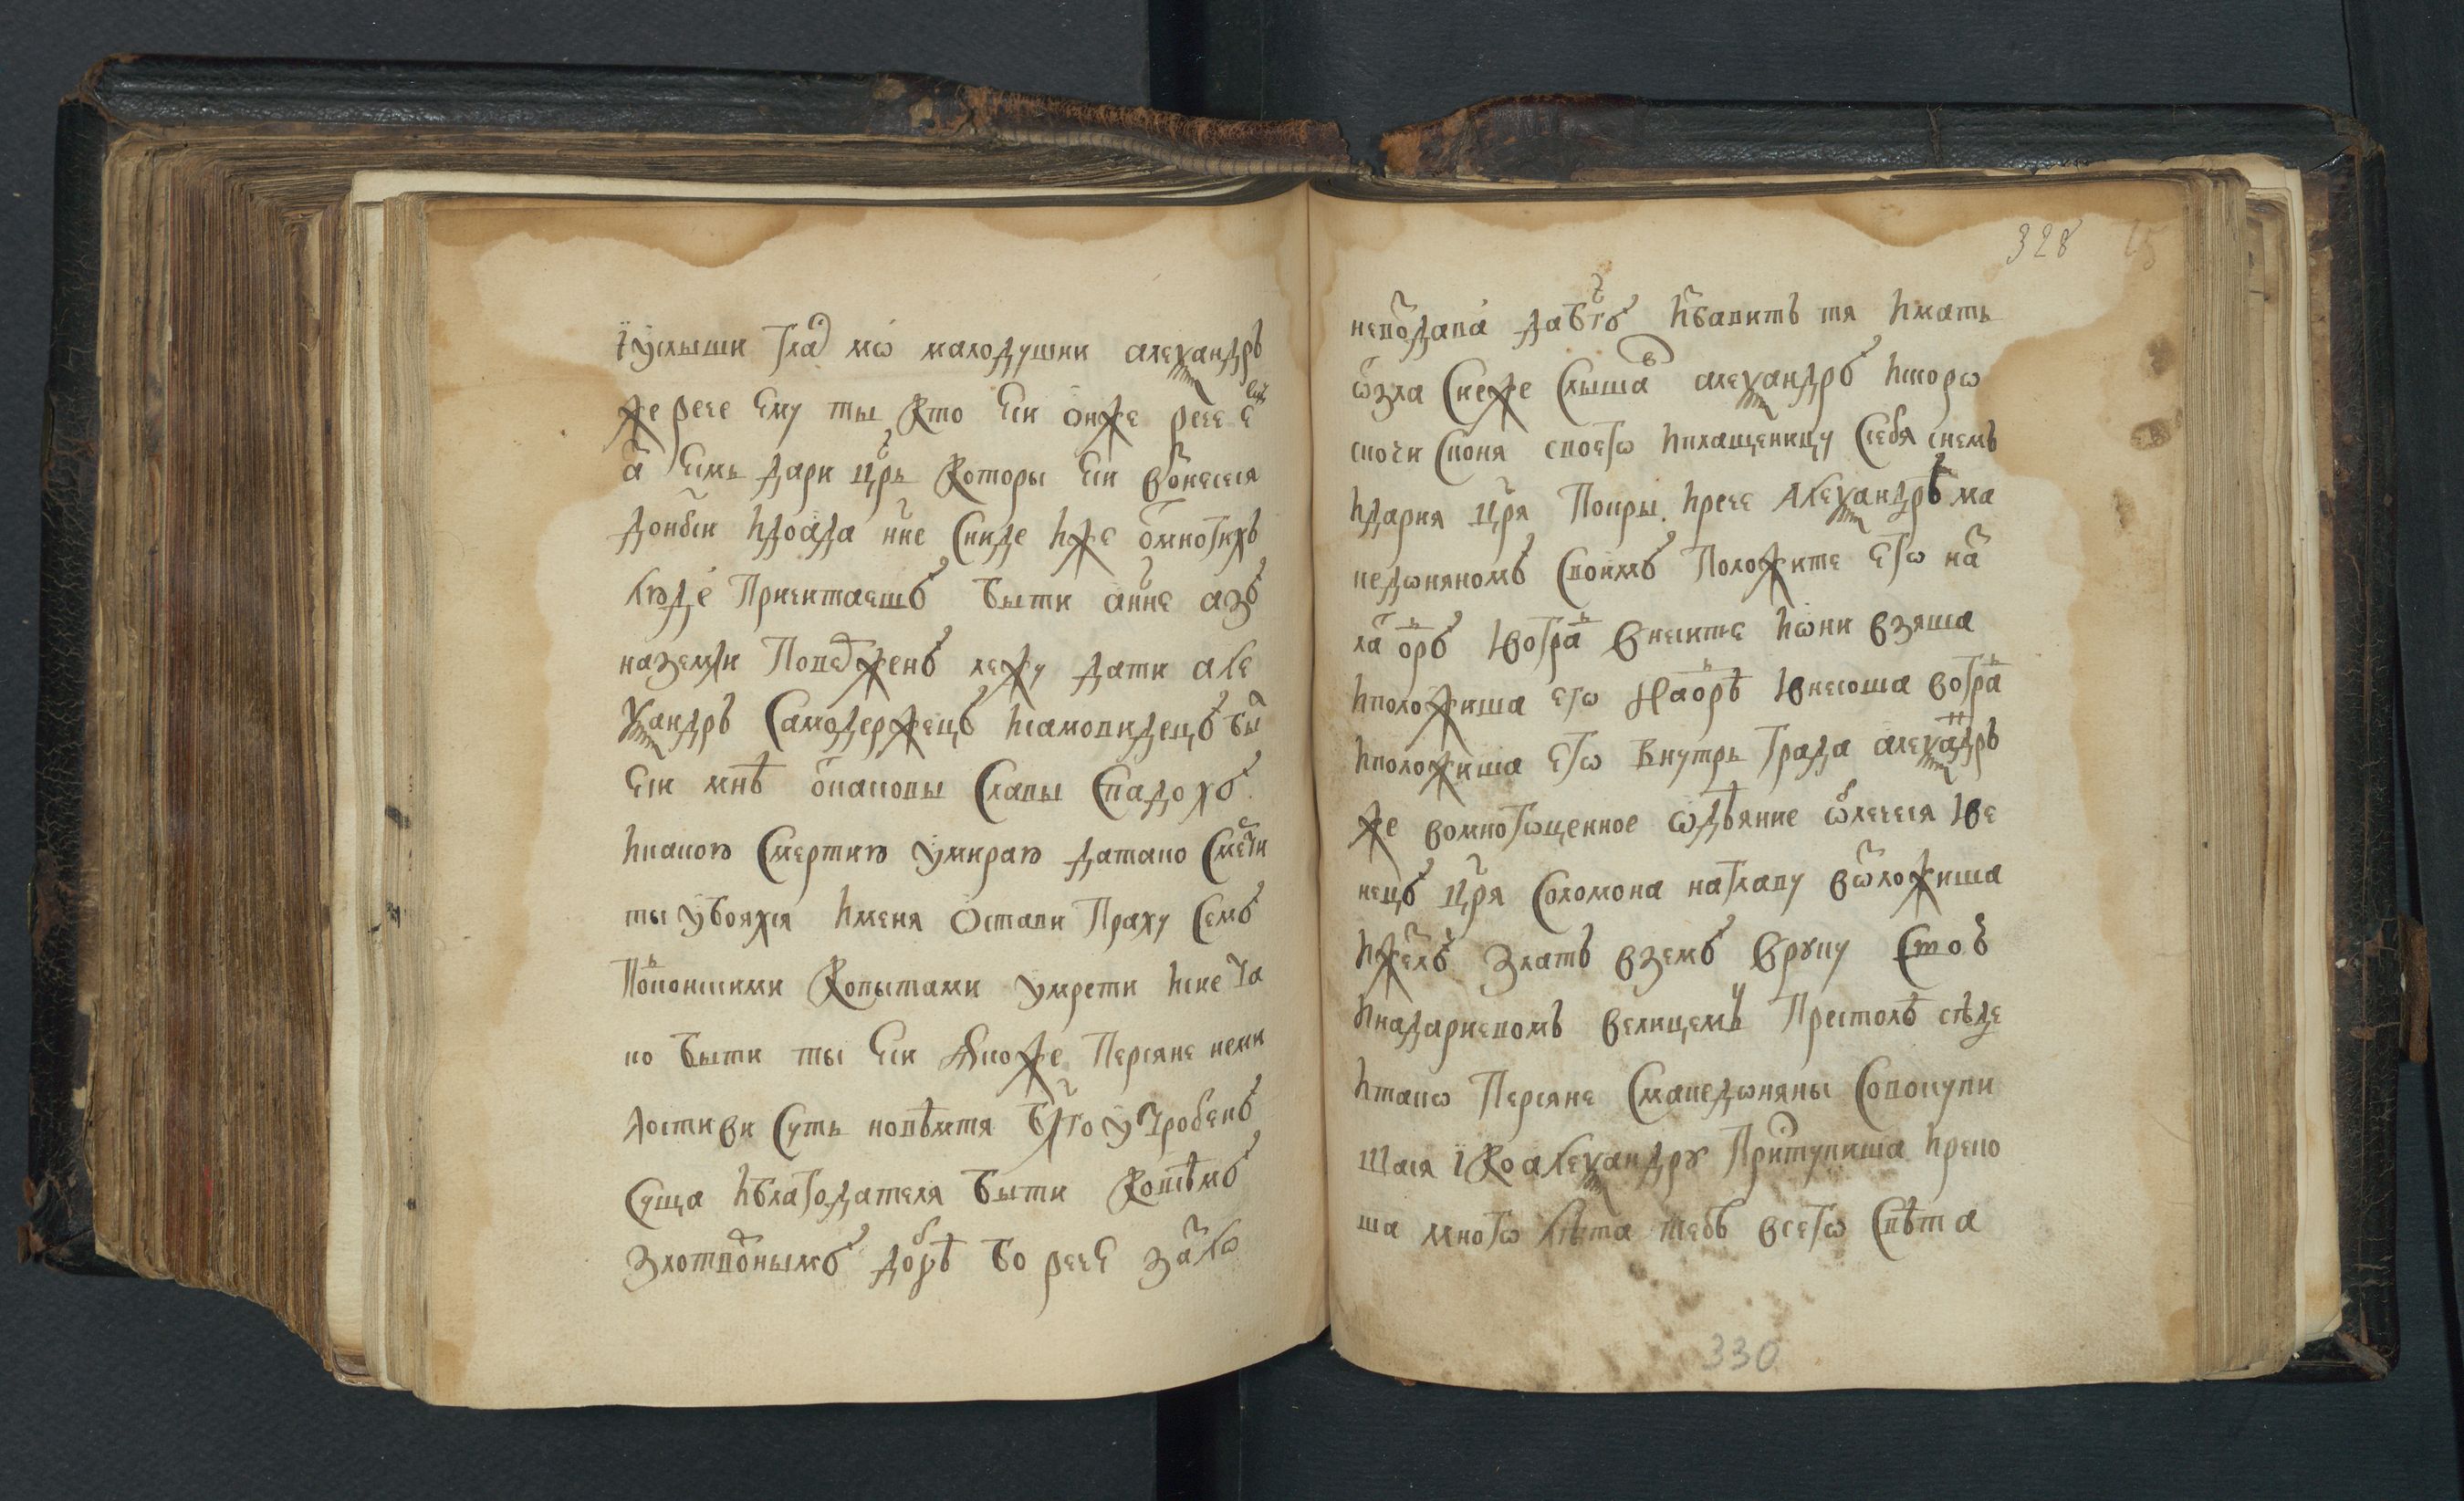 і услыши гла мо малодушни алеѯандръ
же рече ему ты кто еси онже рече е
а есмь дари црь которы еси вонесеся
донбси и до ада нне сниде иже ѿ многихъ
люде причитаешъ быти а нне азъ
на земли поверженъ лежу дати але
ѯандръ самодержецъ и самовидецъ бы
еси мнѣ ѿ каковы славы спадохъ
и какою смертию умираю да тако смети
ты убояхся и меня остави праху семъ
по конскими копытами умрети и не ча
ко быти ты еси якоже персяне неми
лостиви суть но вѣмтя бгтоутробенъ
суща и благодателя быти ко всѣмъ
злотвонымъ добрѣ бо рече за ло
328
не воздава да бгъ избавитъ тя имать
ѿ зла сие же слыша алеѯандръ и скоро
скочи с коня своего и плащеницу с себя снемъ
и дария цря покры и рече алеѯандръ ма
недоняномъ своимъ положите его на
ла оръ и во гра внесите и они взяша
и положиша его на оръ и внесоша во гра
и положиша его внутрь града алеѯадръ
же во многоценное одѣяние облечеся и ве
нецъ цря соломона на главу возложиша
и жезлъ златъ вземъ в руку своѣ
и на дариевомъ велицемъ престолѣ сѣде
и тако персяне с македоняны совокупи
шася і ко алеѯандру приступиша и реко
ша много лѣта тебѣ всего свѣта
330